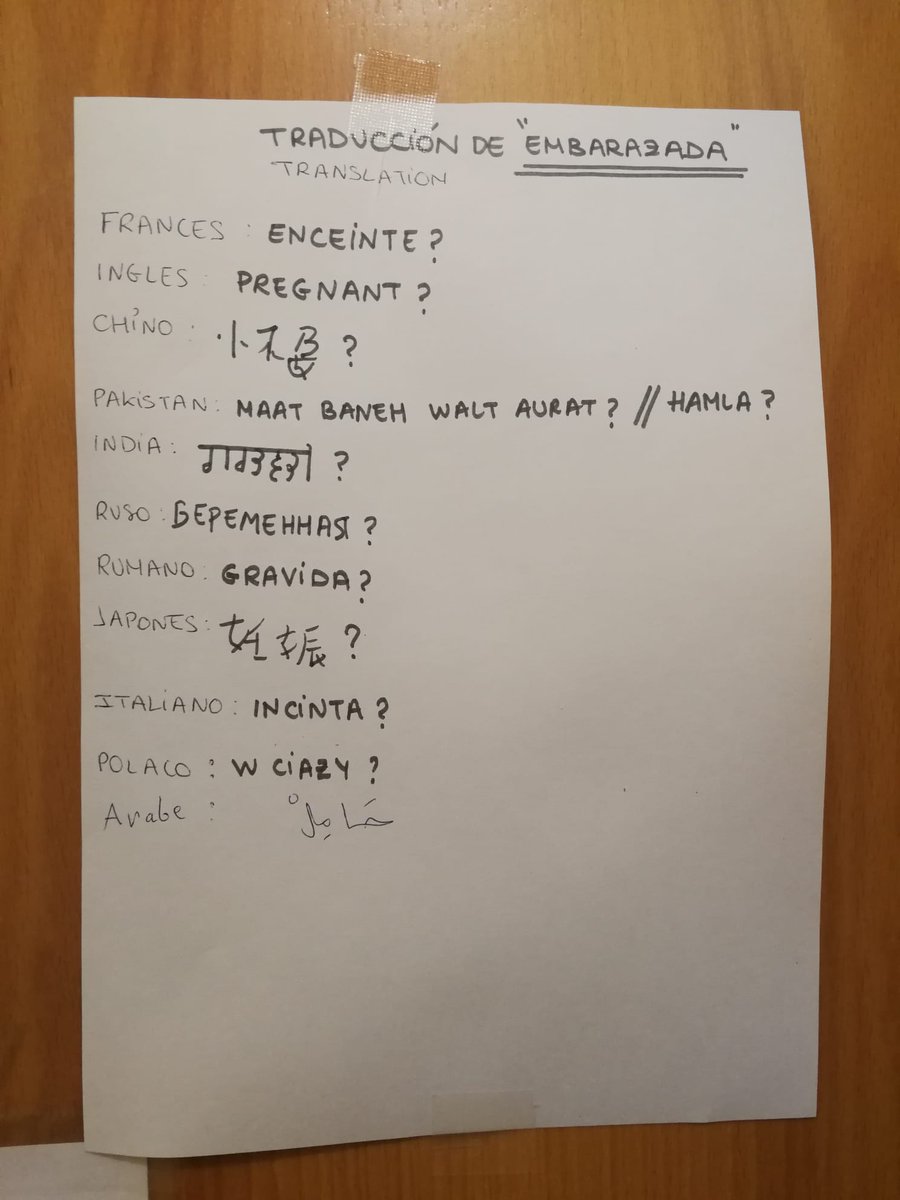 TRADUCCIÓN DE "EMBARAZADA"
TRANSLATION
FRANCES : ENCEINTE?
INGLES : PREGNANT?
CHINO : ?
PAKISTAN: MAAT BANEH WALT AURAT? // HAMLA?
INDIA: ?
RUSO: БЕРЕМЕННАЯ?
RUMANO: GRAVIDA?
JAPONES: 妊娠?
ITALIANO: INCINTA?
POLACO: W CIAZY?
Arabe : حَامِلْ